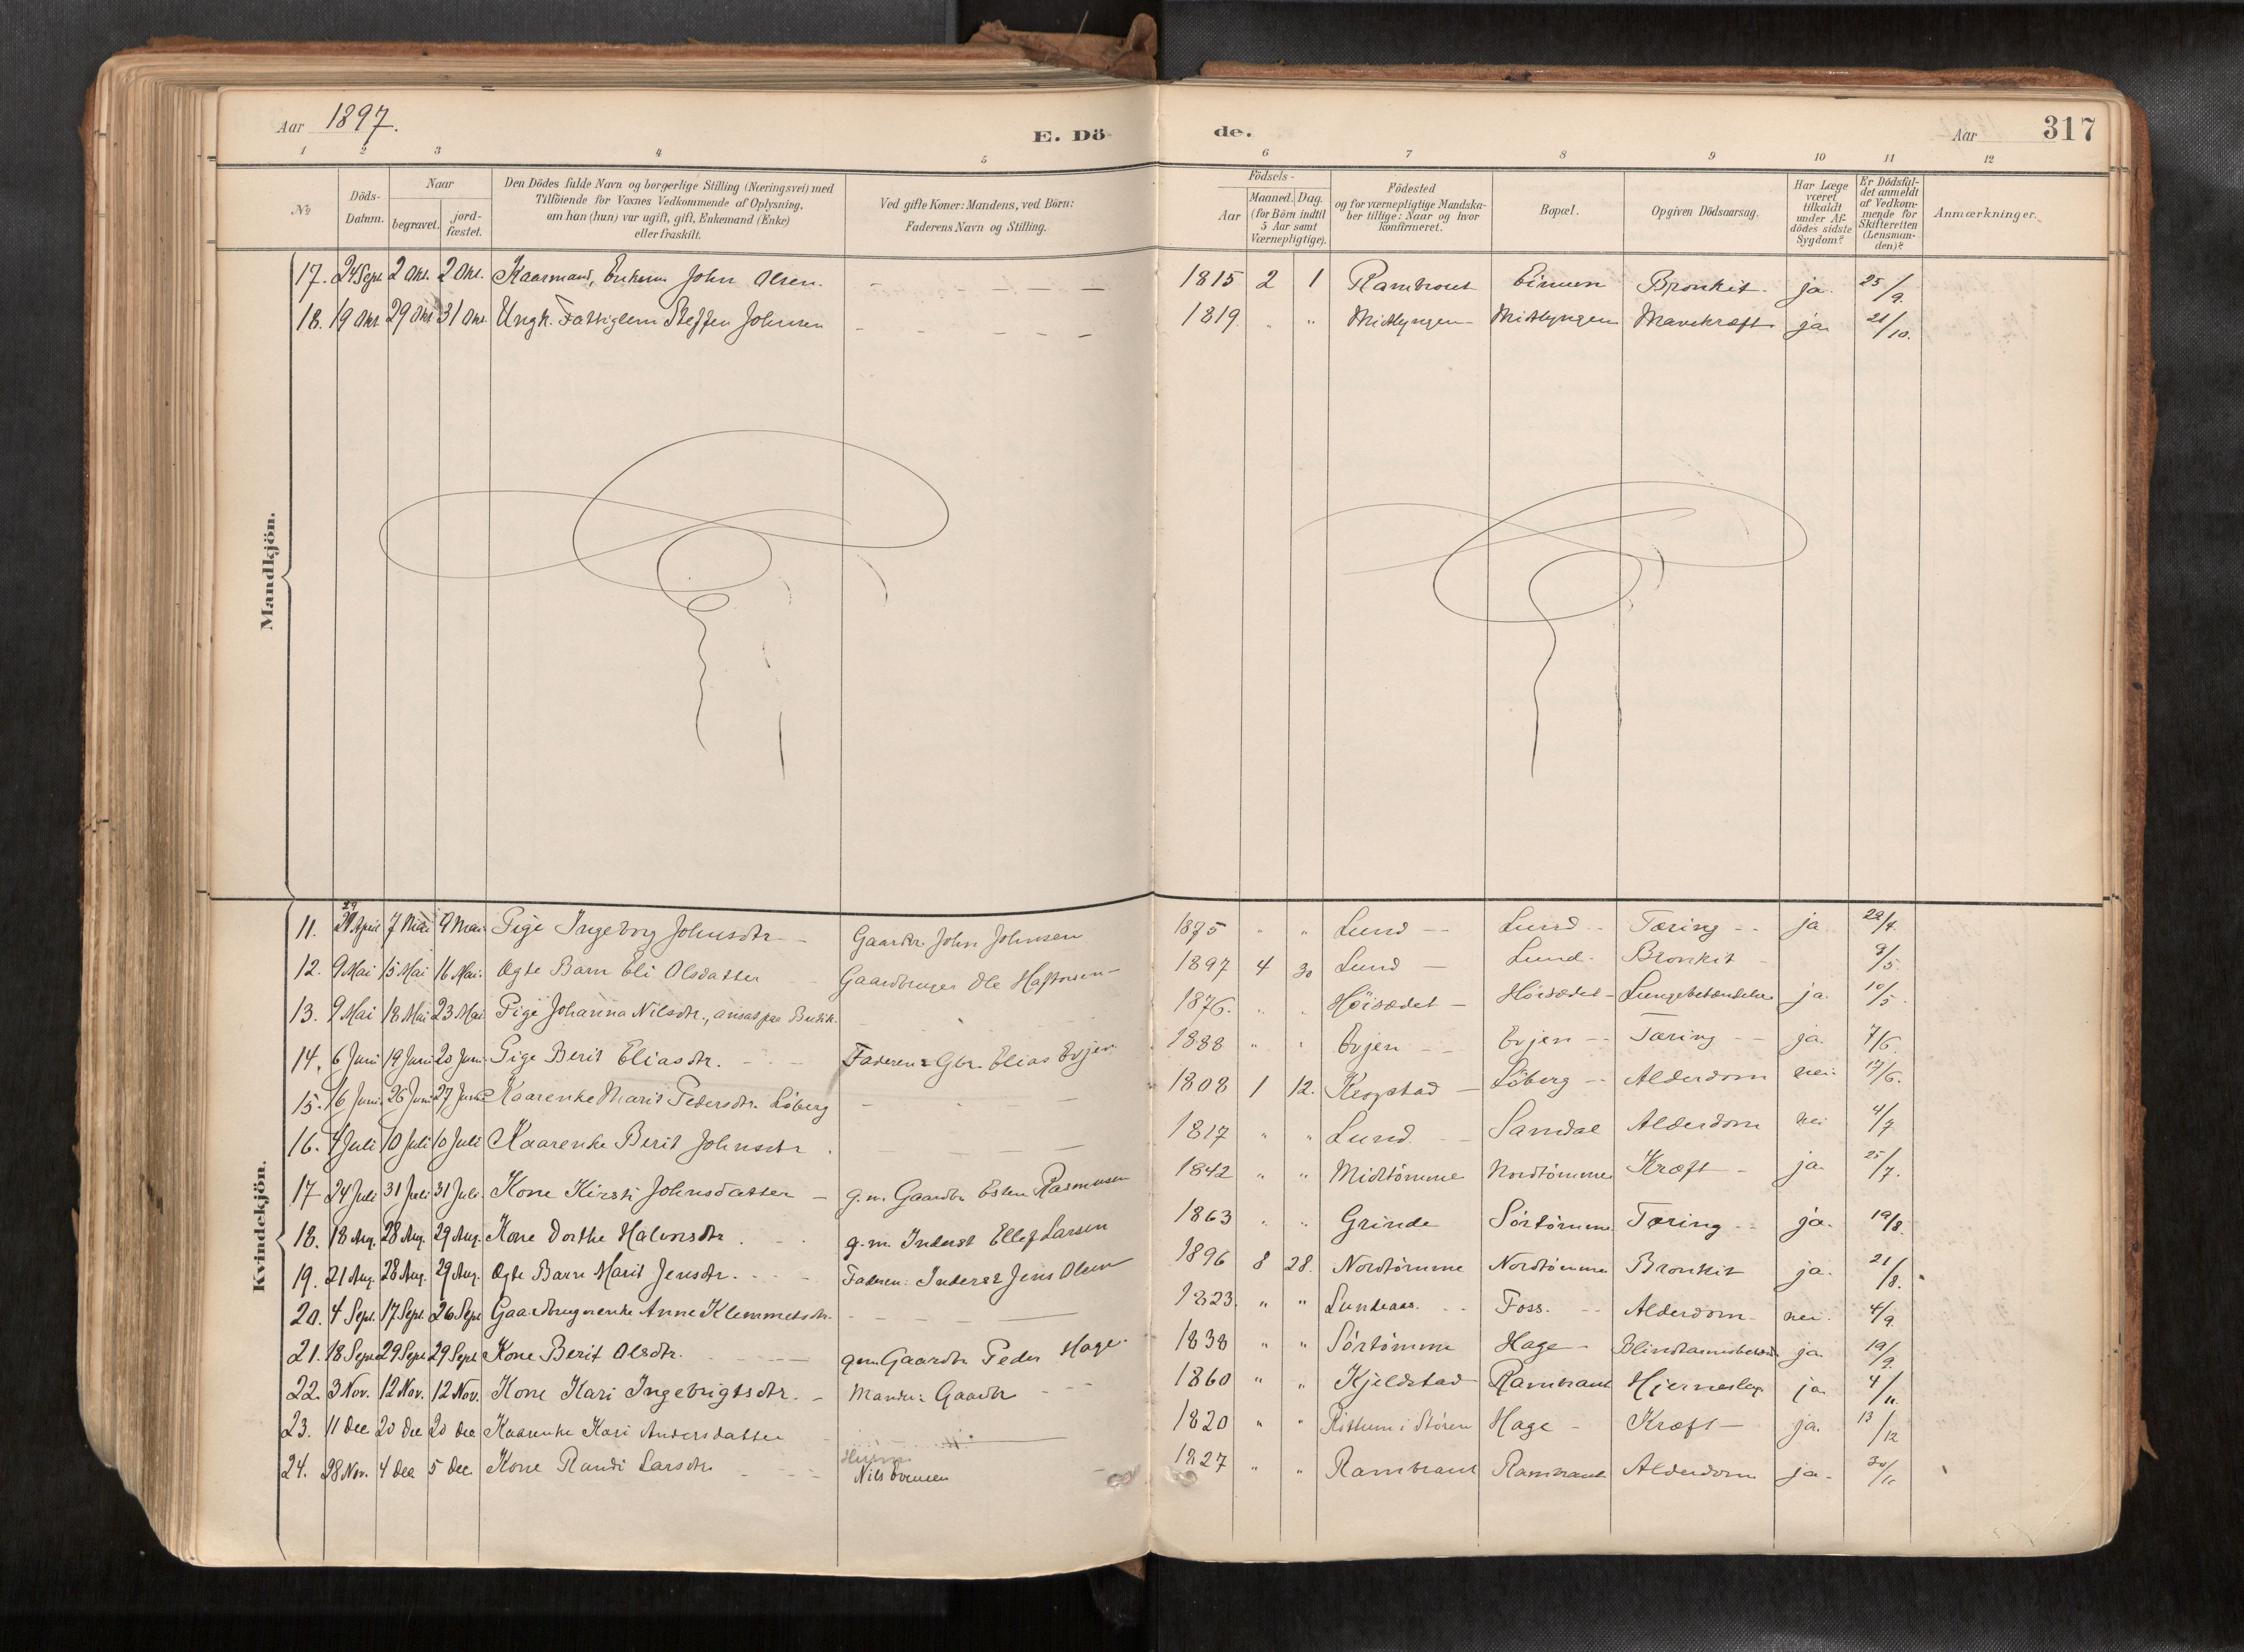 Aar 1897.
E. Dö
de.
Aar
317
1 2 3 4 5 6 7 8 9 10 11 12
№
Döds-
Datum.
Naar
begravet.
jord-
fæstet.
Den Dödes fulde Navn og borgerlige Stilling (Næringsvei) med
Tilföiende for Voxnes Vedkommende af Oplysning,
om han (hun) var ugift, gift, Enkemand (Enke)
eller fraskilt.
Ved gifte Koner: Mandens, ved Börn:
Faderens Navn og Stilling.
Födsels-
Aar
Maaned. Dag.
(for Börn indtil
5 Aar samt
Værnepligtige).
Födested
og for værnepligtige Mandska-
ber tillige: Naar og hvor
konfirmeret.
Bopæl.
Opgiven Dödsaarsag.
Har Læge
været
tilkaldt
under Af-
dödes sidste
Sygdom?
Er Dödsfal-
det anmeldt
af Vedkom-
mende for
Skifteretten
(Lensman-
den)?
Anmærkninger.
Mandkjön.
17. 24 Sept. 2 Okt. 2 Okt. Kaarmand, Enkem. John Olsen. 1815 2 1 Rambraut Bronkit. ja. 25/9.
18. 19 Okt. 29 Okt. 31 Okt. Ungk. Fattiglem Steffen Johnsen 1819. " " Midtlyngen Midtlyngen Mavekræft ja 21/10.
Kvindekjön.
11. 29 April 7 Mai 9 Mai Pige Ingeborg Johnsdtr. Gaardbr. John Johnsen 1875 " " Lund Lund Tæring ja 29/4.
12. 9 Mai 15 Mai 16 Mai. Ægte Barn Eli Olsdatter Gaardbruger Ole Haftorsen 1897 4 30 Lund Lund Bronkit 9/5.
13. 9 Mai 18 Mai 23 Mai Pige Johanna Nilsdtr., ansat paa Butik. 1876. " " Höisædet Höisædet Lungebetændelse ja 10/5.
14. 6 Juni 19 Juni 20 Juni Pige Berit Eliasdtr. Faderen: Gbr. Elias Evjen 1888 " " Evjen Evjen Tæring ja. 7/6.
15. 16 Juni. 26 Juni 27 Juni Kaarenke Marit Pedersdtr. Löberg 1808 1 12. Kregstad Löberg Alderdom nei. 17/6.
16. 4 Juli 10 Juli 10 Juli Kaarenke Berit Johnsdtr. 1817 " " Lund. Samdal Alderdom nei 4/7
17 24 Juli 31 Juli 31 Juli. Kone Kirsti Johnsdatter g.m. Gaardbr. Esten Rasmusen 1842 " " Midttömme Nordtömme Kræft ja 25/7.
18. 18 Aug. 28 Aug. 29 Aug. Kone Dorthe Halvorsdtr. g.m. Inderst Ellef Larsen 1863 " " Grinde Sörtömme Tæring ja. 19/8.
19. 21 Aug. 28 Aug. 29 Aug. Ægte Barn Marit Jensdtr. Faderen: Inderst Jens Olsen 1896 8 28. Nordtömme Nordtömme Bronkit ja. 21/8.
20. 4 Sept. 17 Sept. 26 Sept Gaardbrugerenke Anne Klemmetsdtr. 1823. " " Lundaas. Foss. Alderdom nei. 4/9.
21. 18 Sept 29 Sept 29 Sept Kone Berit Olsdtr. gm Gaardbr Peder Hage. 1838 " " Sörtömme Hage Blindtarmsbetænd. ja 19/9.
22. 3 Nov. 12 Nov. 12 Nov. Kone Kari Ingebrigtsdtr. Manden: Gaardbr 1860 " " Kjeldstad Rambraut Hjerneslag ja 4/11.
23. 11 Dec 20 Dec 20 Dec Kaarenke Kari Andersdatter 1820 " " i Stören Hage Kræft ja. 13/12
24. 28 Nov. 4 Dec 5 Dec. Kone Randi Larsdtr. Nils Evensen 1827 " " Rambraut Rambraut Alderdom ja. 30/11